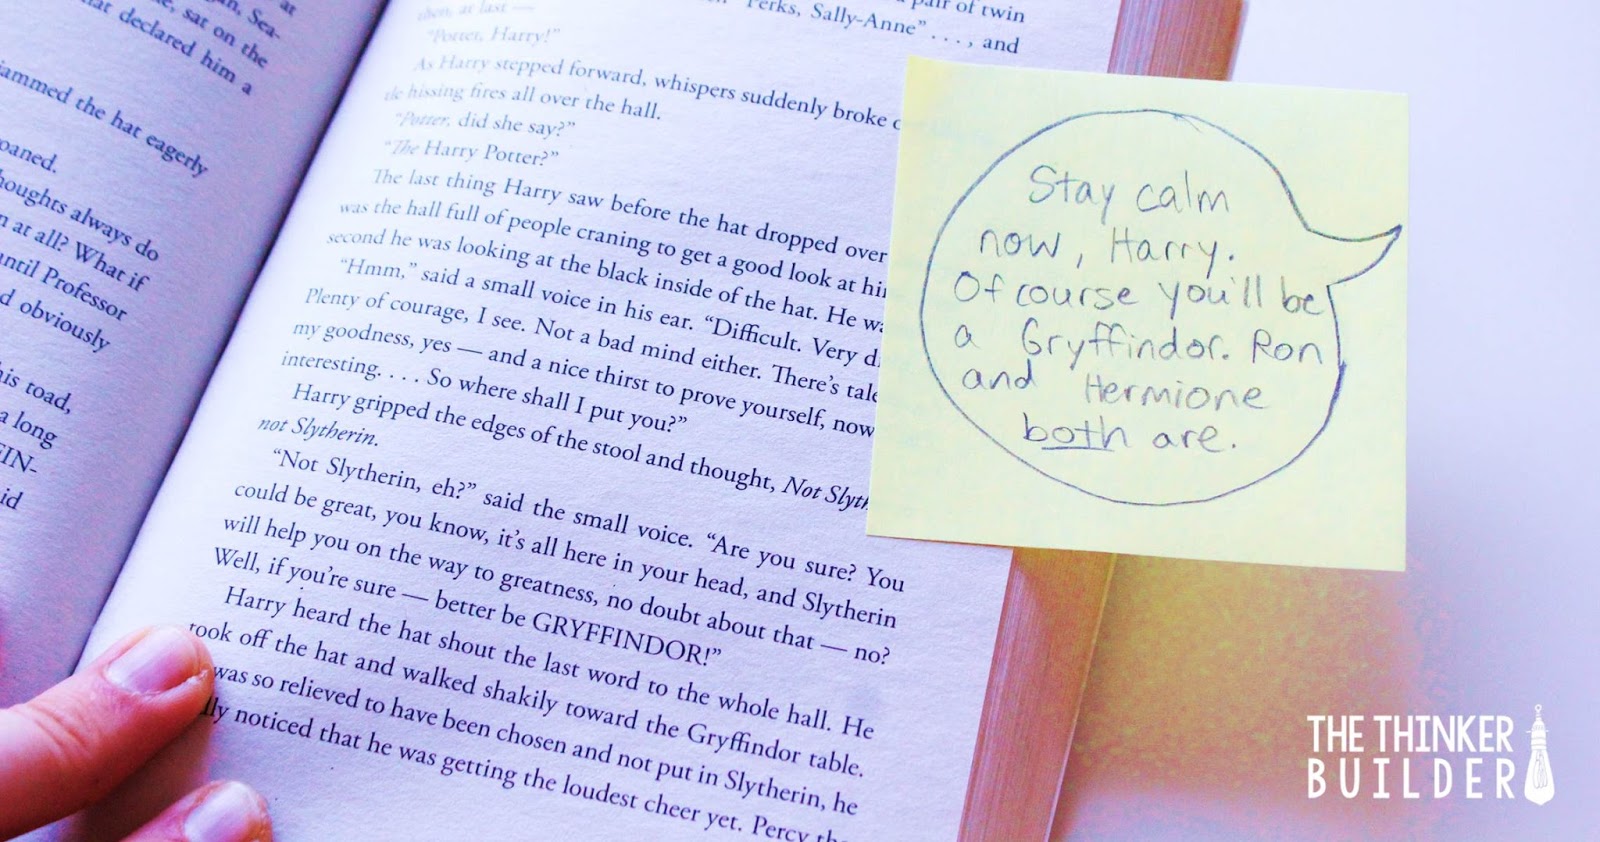 at
gan, Sea-
e, sat on the
hat declared him a
jammed the hat eagerly
oaned.
houghts always do
n at all? What if
until Professor
d obviously
his toad,
a long
FIN-
id
pair of twin
Perks, Sally-Anne" . . . , and
then, at last —
"Potter, Harry!"
As Harry stepped forward, whispers suddenly broke o
tle hissing fires all over the hall.
"Potter, did she say?"
"The Harry Potter?"
The last thing Harry saw before the hat dropped over
was the hall full of people craning to get a good look at hi
second he was looking at the black inside of the hat. He wa
"Hmm," said a small voice in his ear. "Difficult. Very di
Plenty of courage, I see. Not a bad mind either. There's tale
my goodness, yes — and a nice thirst to prove yourself, now
interesting. . . . So where shall I put you?"
Harry gripped the edges of the stool and thought, Not Slyth
not Slytherin.
"Not Slytherin, eh?" said the small voice. "Are you sure? You
could be great, you know, it's all here in your head, and Slytherin
will help you on the way to greatness, no doubt about that — no?
Well, if you're sure — better be GRYFFINDOR!"
Harry heard the hat shout the last word to the whole hall. He
took off the hat and walked shakily toward the Gryffindor table.
was so relieved to have been chosen and not put in Slytherin, he
lly noticed that he was getting the loudest cheer yet. Percy the
Stay calm
now, Harry.
Of course you'll be
a Gryffindor. Ron
and Hermione
both are.
THE THINKER
BUILDER